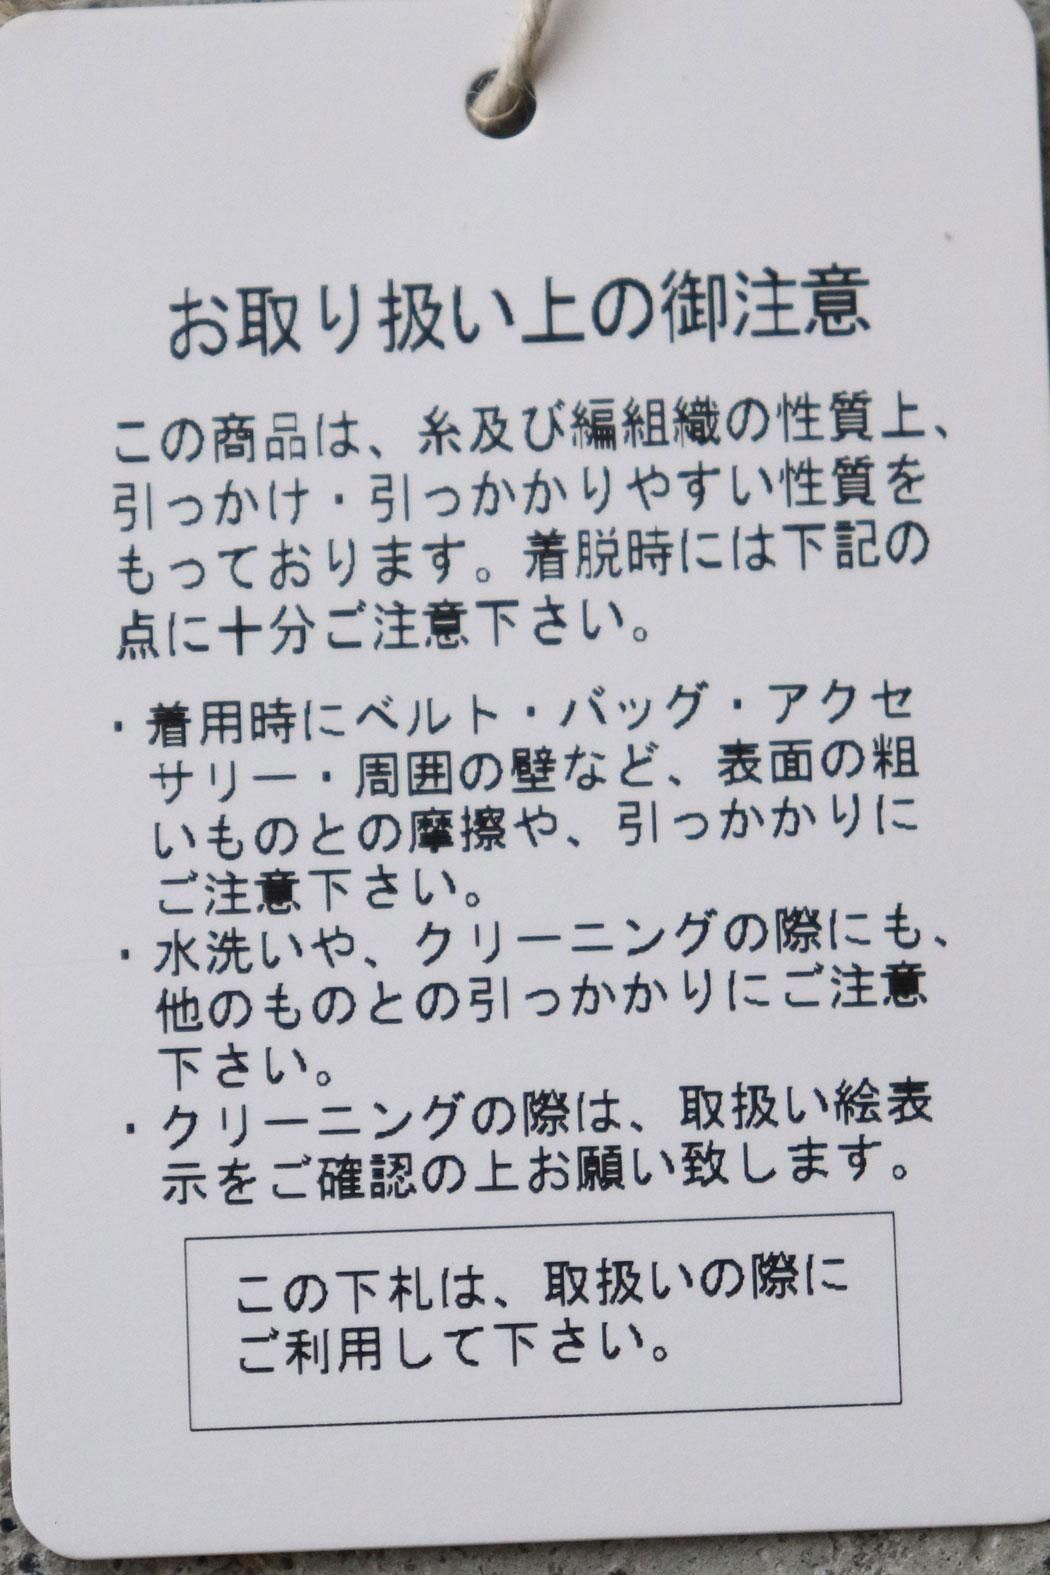 お取り扱い上の御注意
この商品は、糸及び編組織の性質上、
引っかけ・引っかかりやすい性質を
もっております。着脱時には下記の
点に十分ご注意下さい。
・着用時にベルト・バッグ・アクセ
サリー・周囲の壁など、表面の粗
いものとの摩擦や、引っかかりに
ご注意下さい。
・水洗いや、クリーニングの際にも、
他のものとの引っかかりにご注意
下さい。
・クリーニングの際は、取扱い絵表
示をご確認の上お願い致します。
この下札は、取扱いの際に
ご利用して下さい。